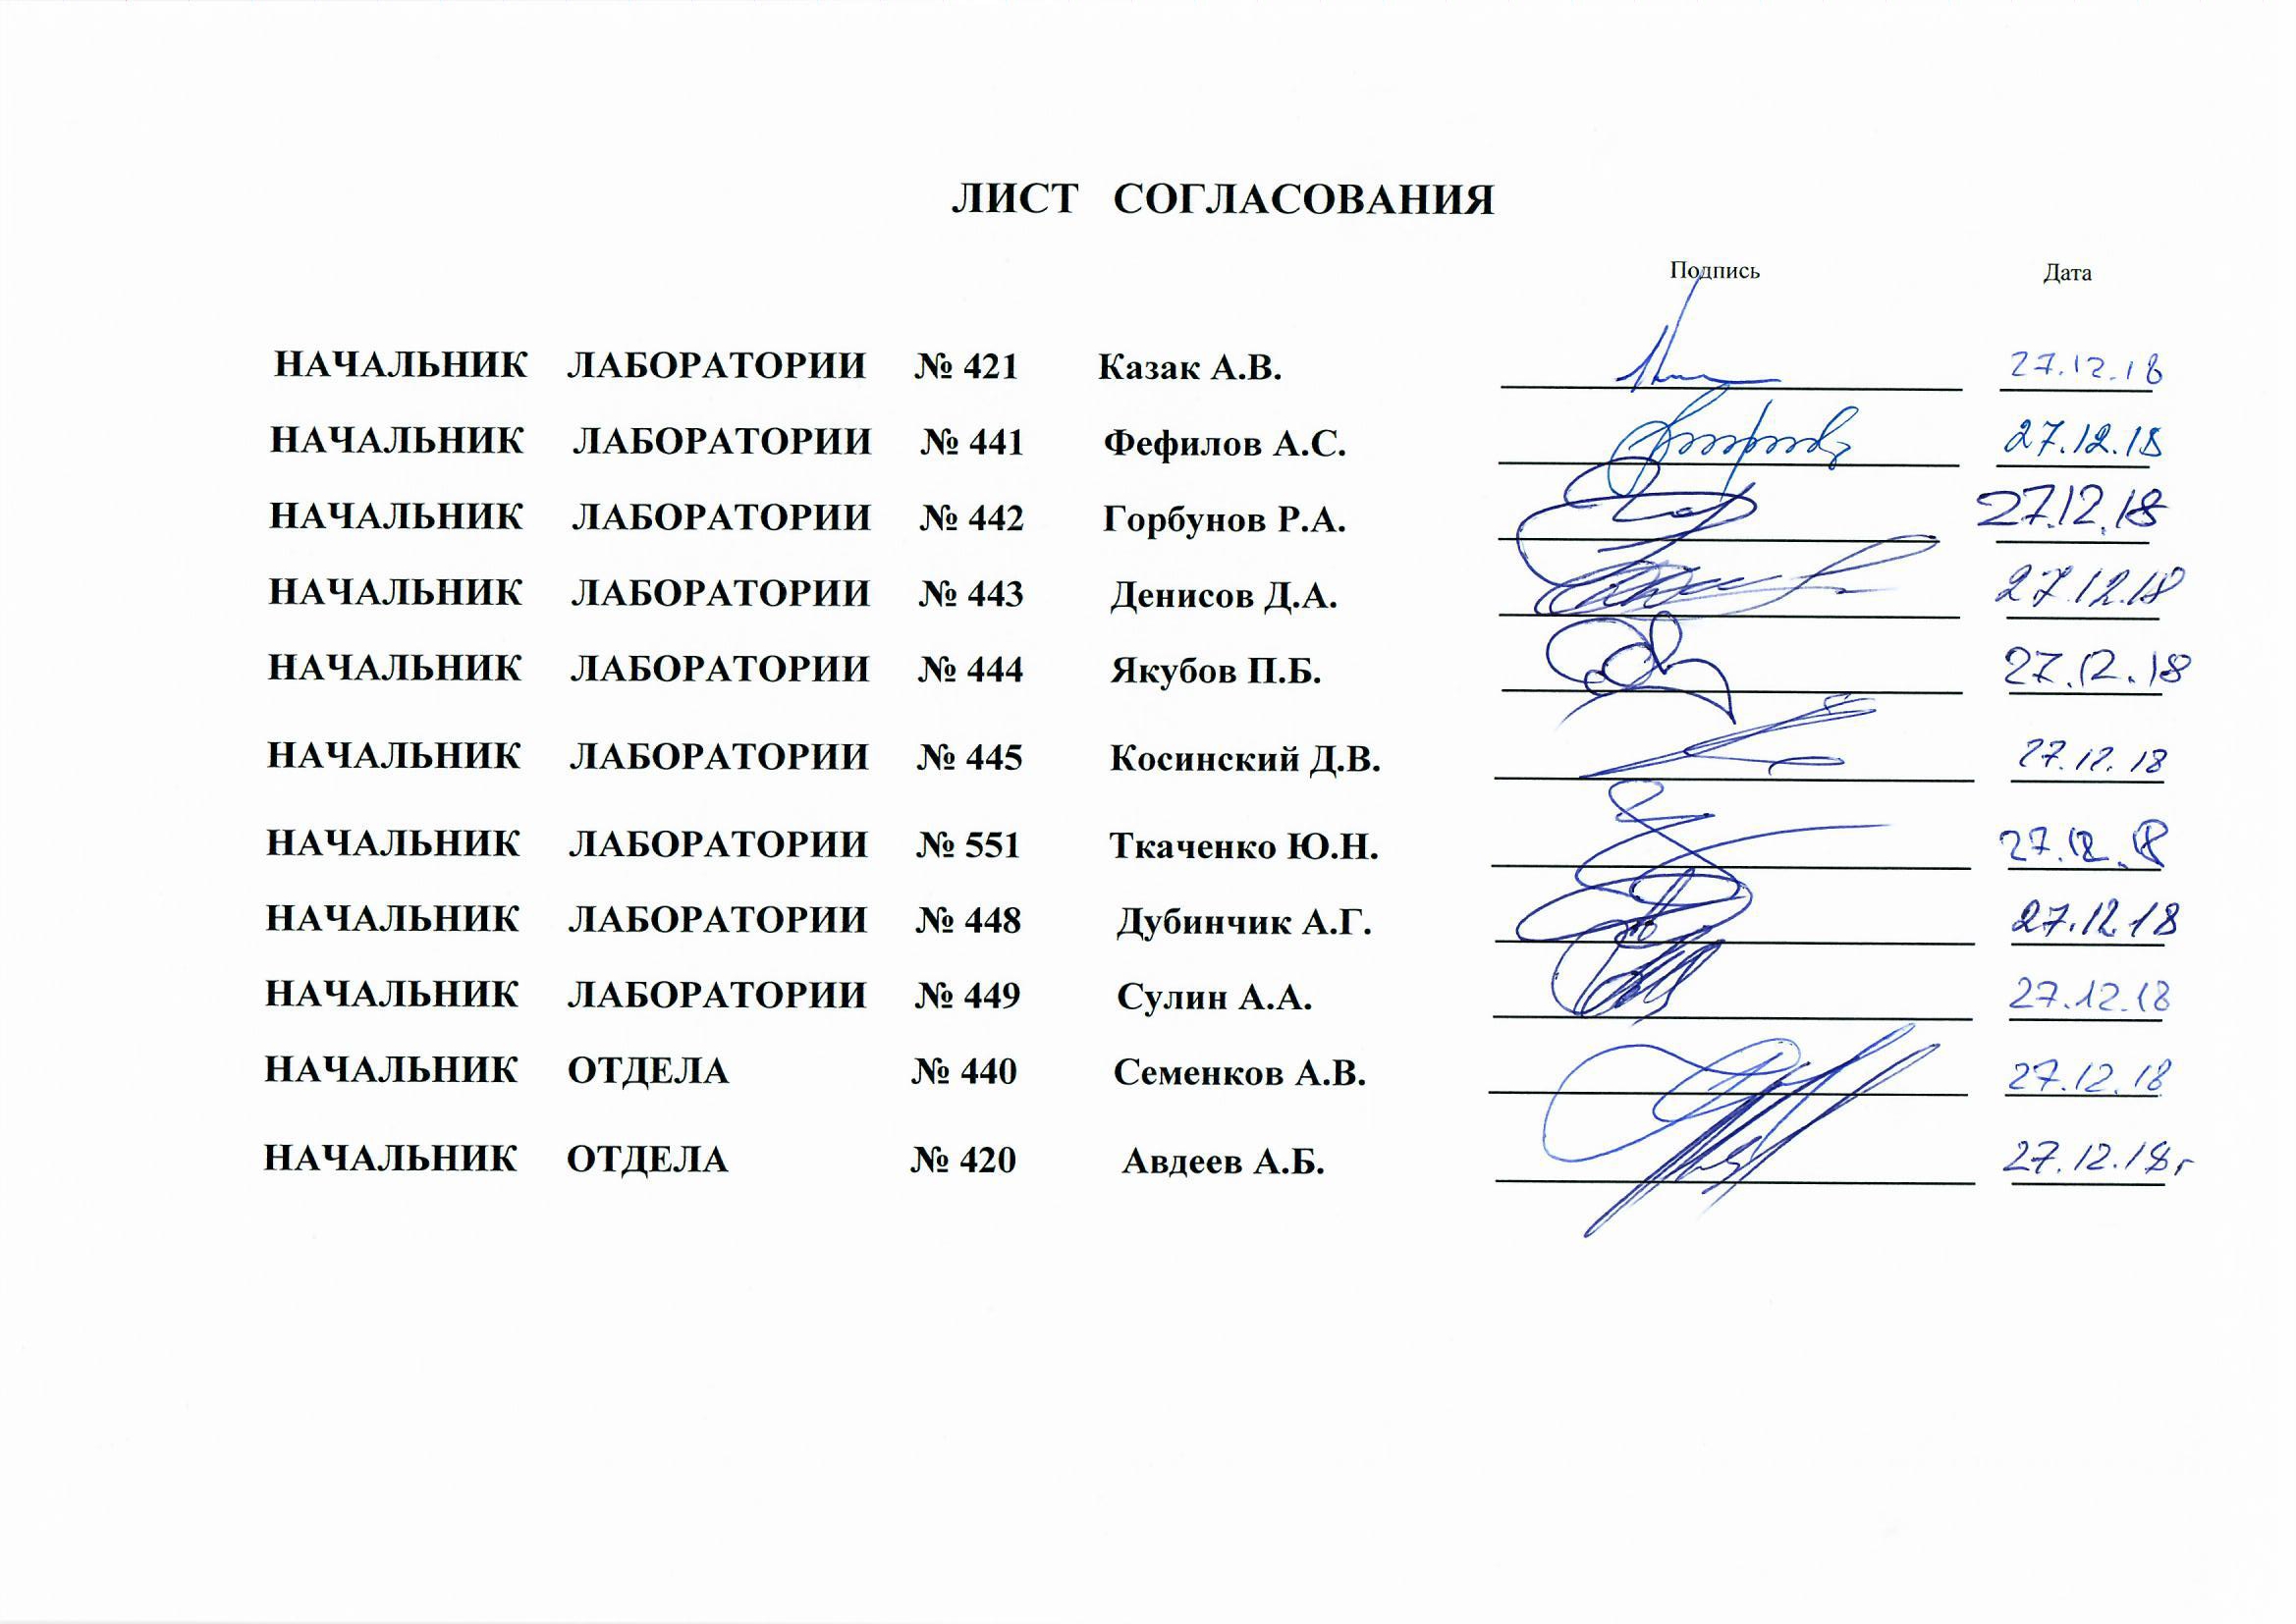 ЛИСТ СОГЛАСОВАНИЯ
Подпись Дата
НАЧАЛЬНИК ЛАБОРАТОРИИ № 421 Казак А.В. 27.12.18
НАЧАЛЬНИК ЛАБОРАТОРИИ № 441 Фефилов А.С. 27.12.18
НАЧАЛЬНИК ЛАБОРАТОРИИ № 442 Горбунов Р.А. 27.12.18
НАЧАЛЬНИК ЛАБОРАТОРИИ № 443 Денисов Д.А. 27.12.18
НАЧАЛЬНИК ЛАБОРАТОРИИ № 444 Якубов П.Б. 27.12.18
НАЧАЛЬНИК ЛАБОРАТОРИИ № 445 Косинский Д.В. 27.12.18
НАЧАЛЬНИК ЛАБОРАТОРИИ № 551 Ткаченко Ю.Н. 27.12.18
НАЧАЛЬНИК ЛАБОРАТОРИИ № 448 Дубинчик А.Г. 27.12.18
НАЧАЛЬНИК ЛАБОРАТОРИИ № 449 Сулин А.А. 27.12.18
НАЧАЛЬНИК ОТДЕЛА № 440 Семенков А.В. 27.12.18
НАЧАЛЬНИК ОТДЕЛА № 420 Авдеев А.Б. 27.12.18г